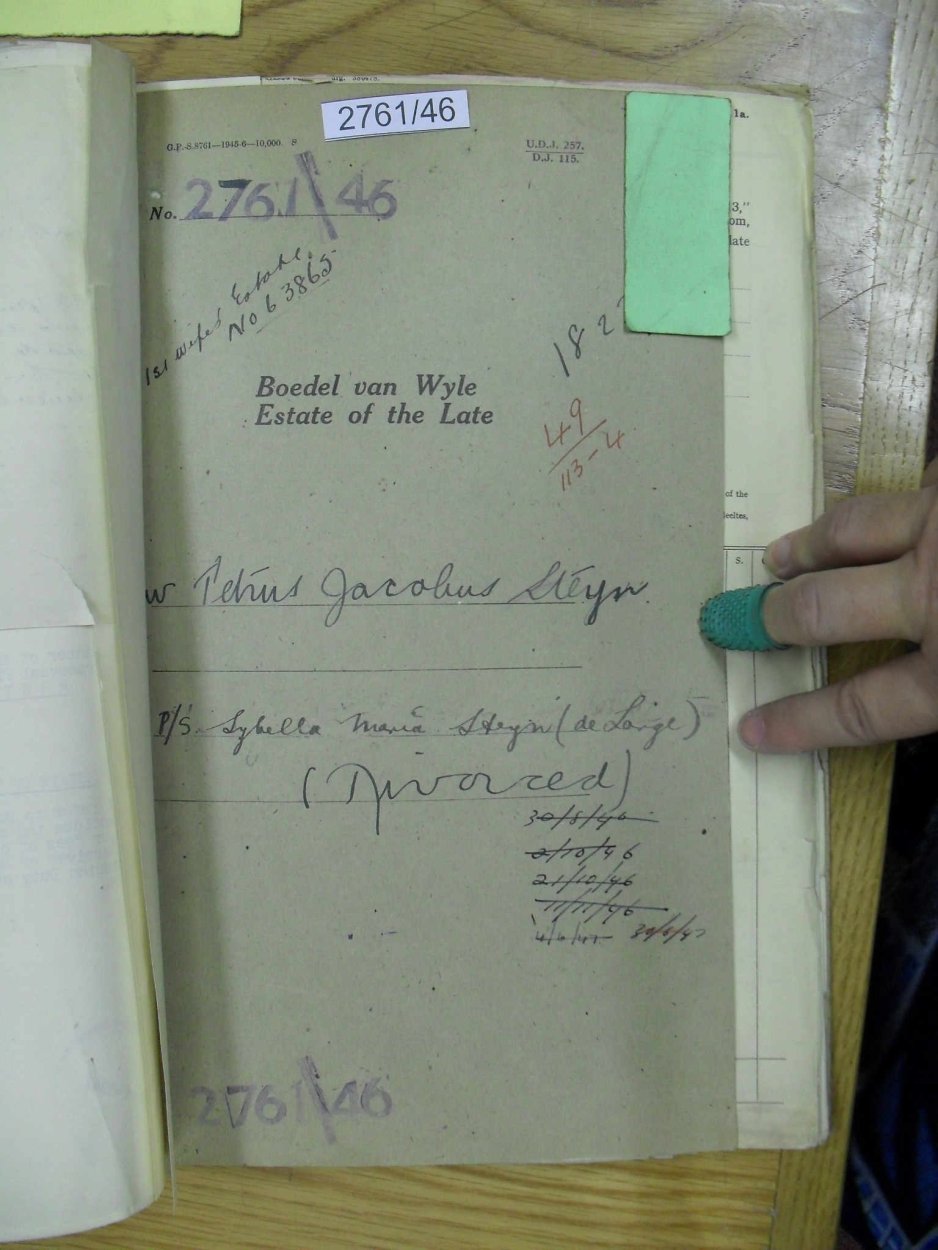 2761/46
G.P.-S.8761—1945-6—10,000. S
U.D.J. 257.
D.J. 115.
1a.
No. 2761/46
3,"
om,
late
1st wife's Estate.
No 6 3865
182
Boedel van Wyle
Estate of the Late
49
113-4
of the
S.
w Petrus Jacobus Steyn
P/S. Sybella Maria Steyn (de Lange)
(Divorced)
30/8/46
2/10/46
21/10/46
11/11/46
4/6/47 30/6/47
2761/46